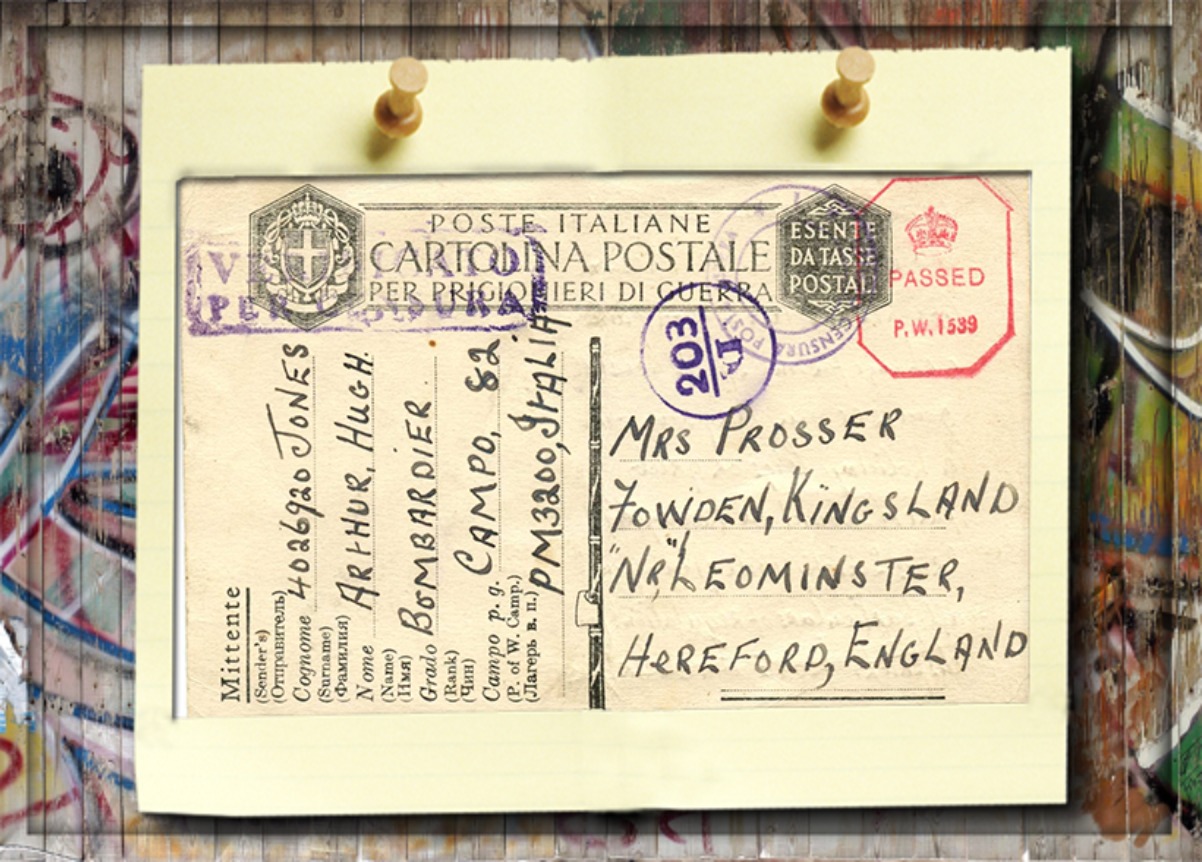 POSTE ITALIANE
CARTOLINA POSTALE
PER PRIGIONIERI DI GUERRA
ESENTE
DA TASSE
POSTALI
PASSED
P.W. 1539
PER CENSURA
CENSURA POST
203
Mittente
(Sender's)
(Отправитель)
Cognome 4026920 JONES
(Surname)
(Фамилия)
Nome ARTHUR, HUGH.
(Name)
(Имя)
Grado BOMBARDIER
(Rank)
(Чин)
Campo p. g. CAMPO, 82
(P. of W. Camp.)
(Лагерь в. п.) PM3200, ITALIA
MRS PROSSER
FOWDEN, KINGSLAND
"NR," LEOMINSTER,
HEREFORD, ENGLAND